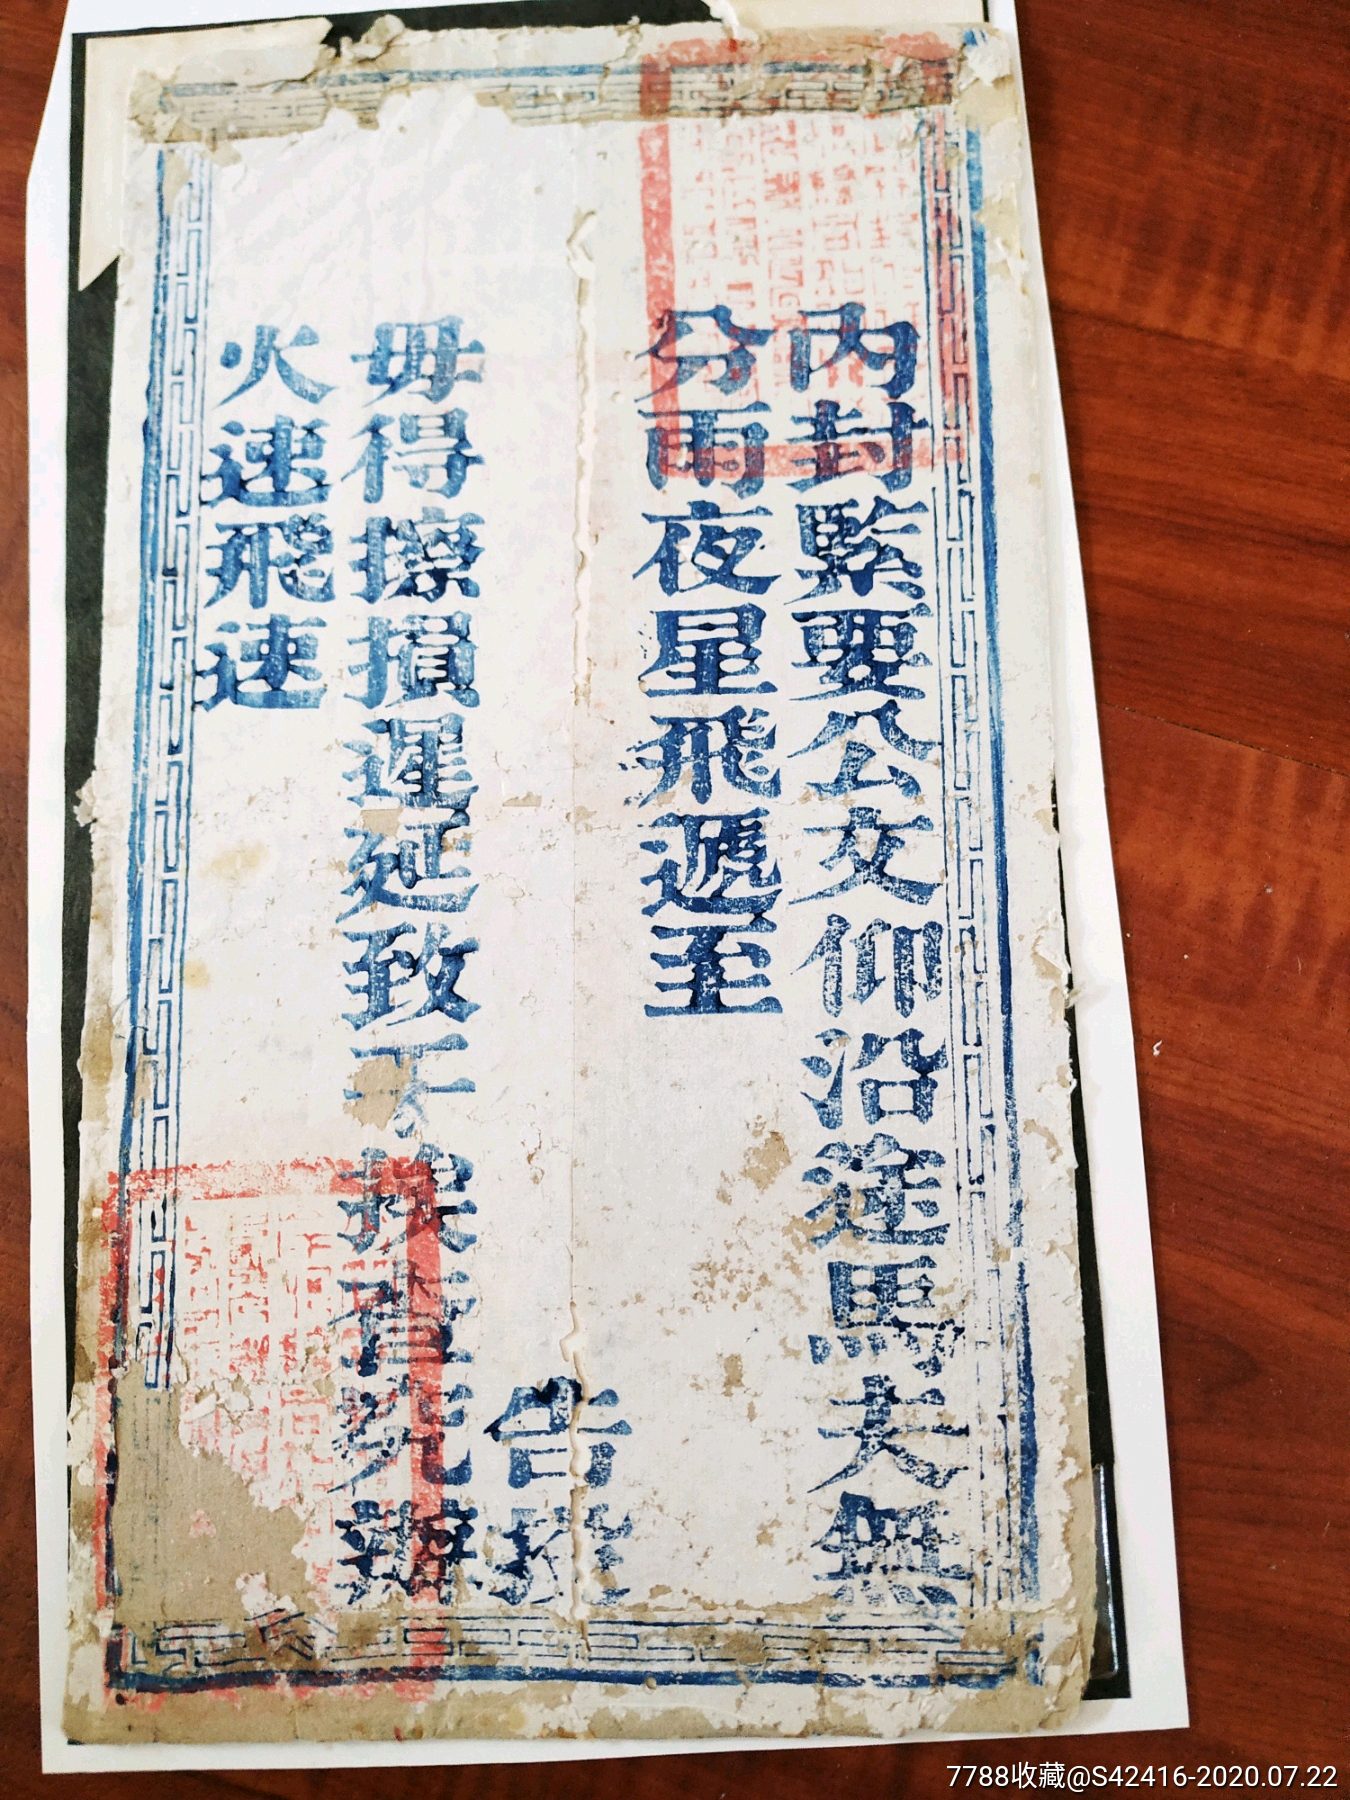 內封緊要公文仰沿途馬夫無
分雨夜星飛遞至
告投
毋得擦損遲延致干挨查究辦
火速飛速
7788收藏@S42416-2020.07.22